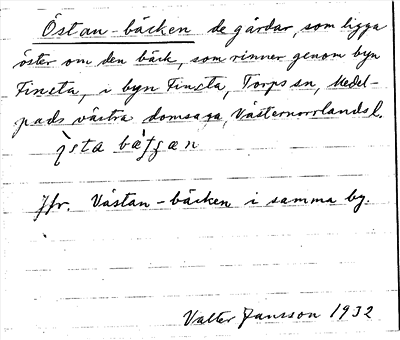 Östan-bäcken de gårdar, som ligga
öster om den bäck, som rinner genom byn
Fincta, i byn Fincta, Torps sn, Medel-
pads västra domsaga, Västernorrlands l.
ỳsta
Jfr. Västan-bäcken i samma by.
Valter Jansson 1932